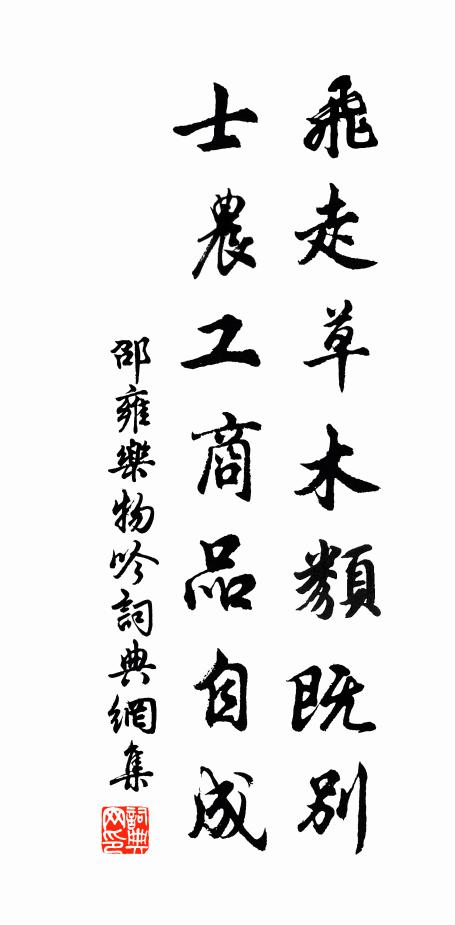 飛走草木類既別
士農工商品自成
邵雍樂物吟詞典網集
詞典网印